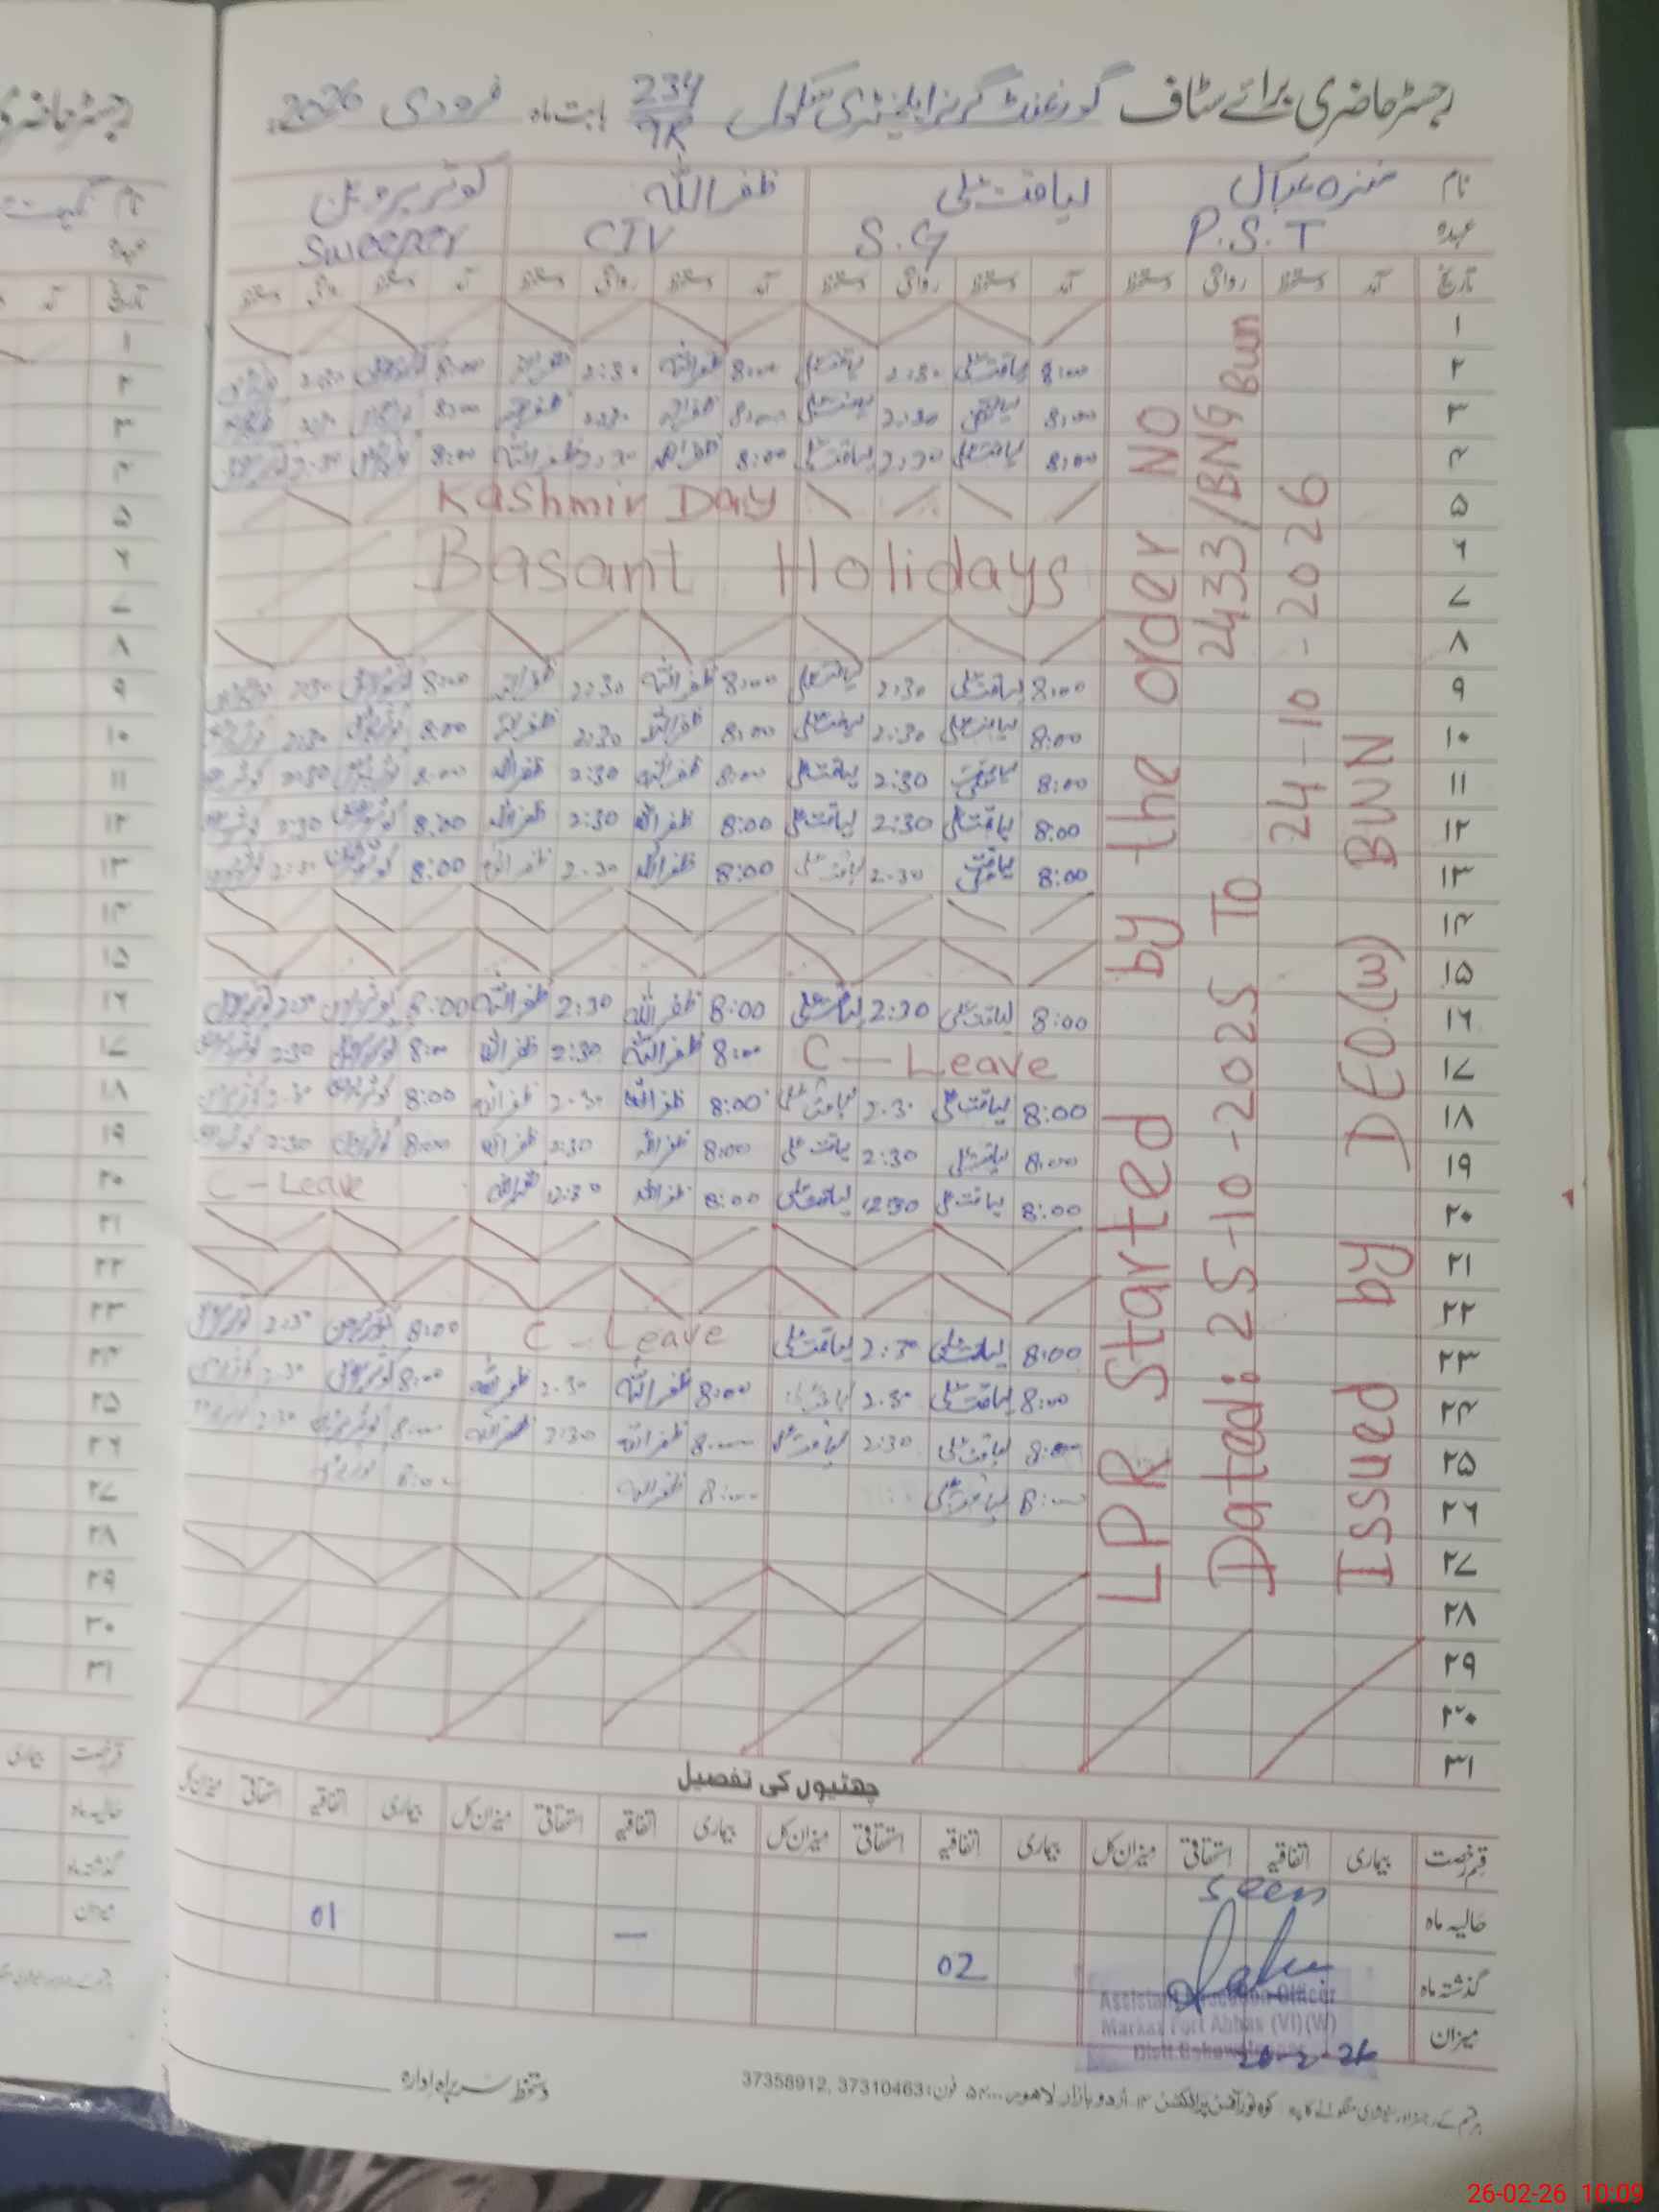 رجسٹر حاضری برائے سٹاف گورنمنٹ گرلز ایلیمنٹری سکول 234/9R بابت ماہ فروری 2026
نام لیاقت علی ظفراللہ کوثر پروین
عہدہ P.S.T S.G CIV Sweeper
تاریخ آمد دستخط روانگی دستخط آمد دستخط روانگی دستخط آمد دستخط روانگی دستخط آمد دستخط روانگی دستخط
LPR Started by the order NO
2433/BNG Bwn
Dated: 25-10-2025 To
24-10-2026
Issued by DEO.(W) BWN
۱
۲ 8:00 لیاقت علی 2:30 لیاقت علی 8:00 ظفراللہ 2:30 ظفراللہ 8:00 کوثر پروین 2:30
۳ 8:00 لیاقت علی 2:30 لیاقت علی 8:00 ظفراللہ 2:30 ظفراللہ 8:00 کوثر پروین 2:30
۴ 8:00 لیاقت علی 2:30 لیاقت علی 8:00 ظفراللہ 2:30 ظفراللہ 8:00 کوثر پروین 2:30 کوثر پروین
۵ Kashmir Day
۶ Basant Holidays
۷
۸
۹ 8:00 لیاقت علی 2:30 لیاقت علی 8:00 ظفراللہ 2:30 ظفراللہ 8:00 کوثر پروین 2:30
۱۰ 8:00 لیاقت علی 2:30 لیاقت علی 8:00 ظفراللہ 2:30 ظفراللہ 8:00 کوثر پروین 2:30
۱۱ 8:00 لیاقت علی 2:30 لیاقت علی 8:00 ظفراللہ 2:30 ظفراللہ 8:00 کوثر پروین 2:30 کوثر پروین
۱۲ 8:00 لیاقت علی 2:30 لیاقت علی 8:00 ظفراللہ 2:30 ظفراللہ 8:00 کوثر پروین 2:30 کوثر پروین
۱۳ 8:00 لیاقت علی 2:30 لیاقت علی 8:00 ظفراللہ 2:30 ظفراللہ 8:00 کوثر پروین 2:30 کوثر پروین
۱۴
۱۵
۱۶ 8:00 لیاقت علی 2:30 لیاقت علی 8:00 ظفراللہ 2:30 ظفراللہ 8:00 کوثر پروین 2:30 کوثر پروین
۱۷ C - Leave 8:00 ظفراللہ 2:30 ظفراللہ 8:00 کوثر پروین 2:30 کوثر پروین
۱۸ 8:00 لیاقت علی 2:30 لیاقت علی 8:00 ظفراللہ 2:30 ظفراللہ 8:00 کوثر پروین 2:30 کوثر پروین
۱۹ 8:00 لیاقت علی 2:30 لیاقت علی 8:00 ظفراللہ 2:30 ظفراللہ 8:00 کوثر پروین 2:30 کوثر پروین
۲۰ 8:00 لیاقت علی 12:30 لیاقت علی 8:00 ظفراللہ 12:30 ظفراللہ C - Leave
۲۱
۲۲
۲۳ 8:00 لیاقت علی 2:30 لیاقت علی C - Leave 8:00 کوثر پروین 2:30 کوثر پروین
۲۴ 8:00 لیاقت علی 2:30 لیاقت علی 8:00 ظفراللہ 2:30 ظفراللہ 8:00 کوثر پروین 2:30 کوثر پروین
۲۵ 8:00 لیاقت علی 2:30 لیاقت علی 8:00 ظفراللہ 2:30 ظفراللہ 8:00 کوثر پروین 2:30
۲۶ 8:00 لیاقت علی 8:00 ظفراللہ 8:00 کوثر پروین
۲۷
۲۸
۲۹
۳۰
۳۱
چھٹیوں کی تفصیل
قسم رخصت بیماری اتفاقیہ استحقاقی میزان کل بیماری اتفاقیہ استحقاقی میزان کل بیماری اتفاقیہ استحقاقی میزان کل بیماری اتفاقیہ استحقاقی میزان کل
Seen
حالیہ ماہ
گذشتہ ماہ 02 — 01
Assistant Education Officer
Markaz Fort Abbas (VI)(W)
Distt.
میزان
دستخط سربراہ ادارہ
اردو بازار لاہور فون: 37310463, 37358912
26-02-26 10:09